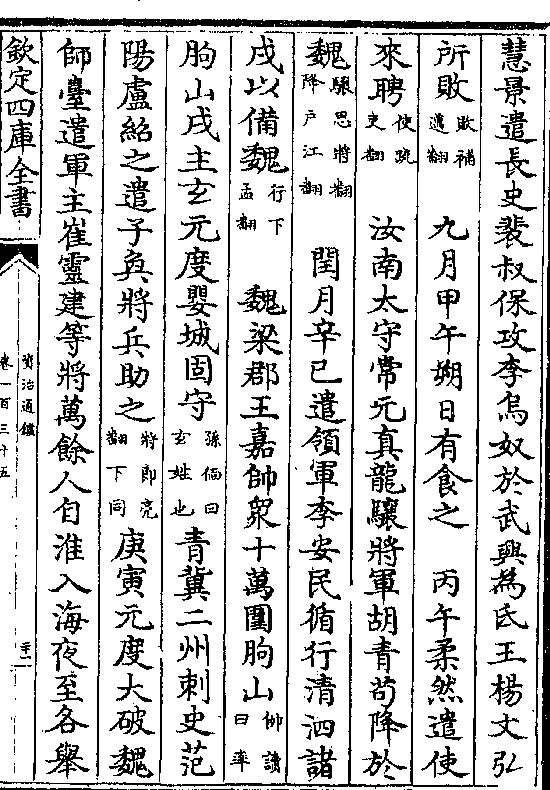 慧景遣長史裴叔保攻李烏奴於武興為氐王楊文弘
所敗敗補邁翻九月甲午朔日有食之丙午柔然遣使
來聘使疏吏翻汝南太守常元真龍驤將軍胡青苟降於
魏驤思將翻降户江翻閏月辛巳遣領軍李安民循行清泗諸
戍以備魏行下孟翻魏梁郡王嘉帥眾十萬圍朐山帥讀曰率
朐山戍主玄元度嬰城固守孫愐曰玄姓也青冀二州刺史范
陽盧紹之遣子奐將兵助之將即亮翻下同庚寅元度大破魏
師臺遣軍主崔靈建等將萬餘人自淮入海夜至各舉
欽定四庫全書
資治通鑑
卷一百三十五